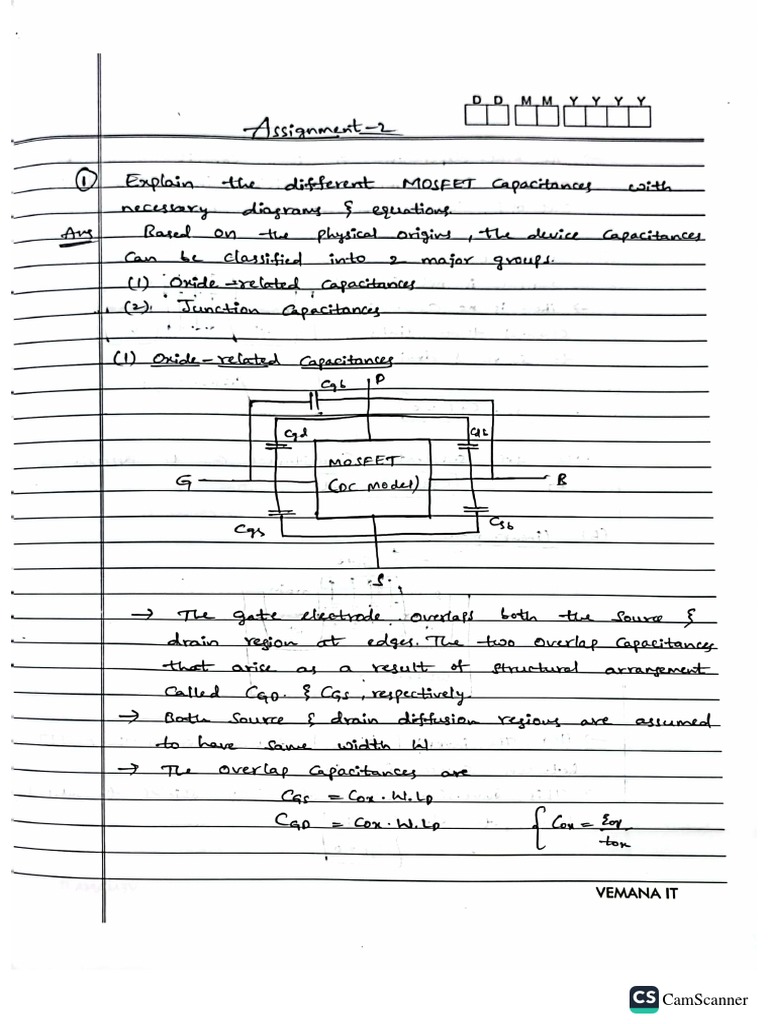 D D M M Y Y Y Y
Assignment-2
① Explain the different MOSFET Capacitances with
necessary diagrams & equations.
Ans Based on the physical origins, the device Capacitances
Can be classified into 2 major groups.
(1) Oxide-related Capacitances
(2). Junction Capacitances
(1) Oxide-related Capacitances
Cgb D
Cgd Cdb
MOSFET
G (DC model) B
Cgs Csb
S
→ The gate electrode overlaps both the Source &
drain region at edges. The two overlap Capacitances
that arise as a result of structural arrangement
Called CGD. & CGS, respectively.
→ Both Source & drain diffusion regions are assumed
to have same width W.
→ The overlap Capacitances are
CGS = Cox . W. LD
CGD = Cox . W. LD { Cox = εox/tox
VEMANA IT
CS CamScanner